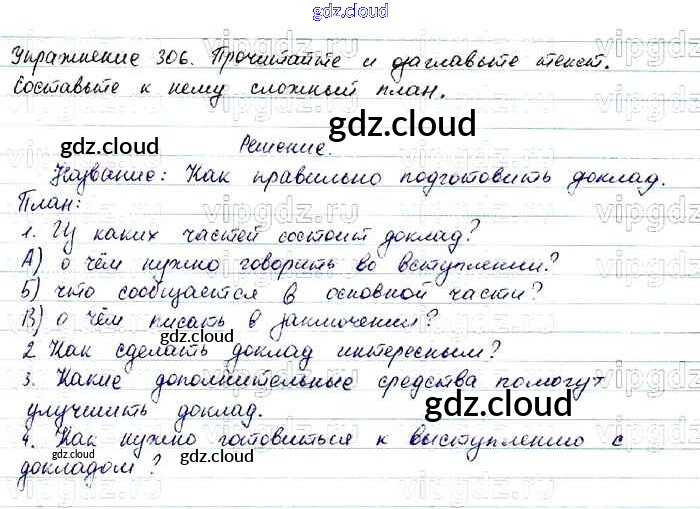 gdz.cloud
Упражнение 306. Прочитайте и озаглавьте текст.
Составьте к нему сложный план.
gdz.cloud
gdz.cloud
Решение.
Название: Как правильно подготовить доклад.
План:
1. Из каких частей состоит доклад?
А) о чём нужно говорить во вступлении?
Б) что сообщается в основной части?
В) о чём писать в заключении?
gdz.cloud
2 Как сделать доклад интересным?
3. Какие дополнительные средства помогут
улучшить доклад.
gdz.cloud
4. Как нужно готовиться к выступлению с
докладом?
gdz.cloud
gdz.cloud
vipgdz.ru